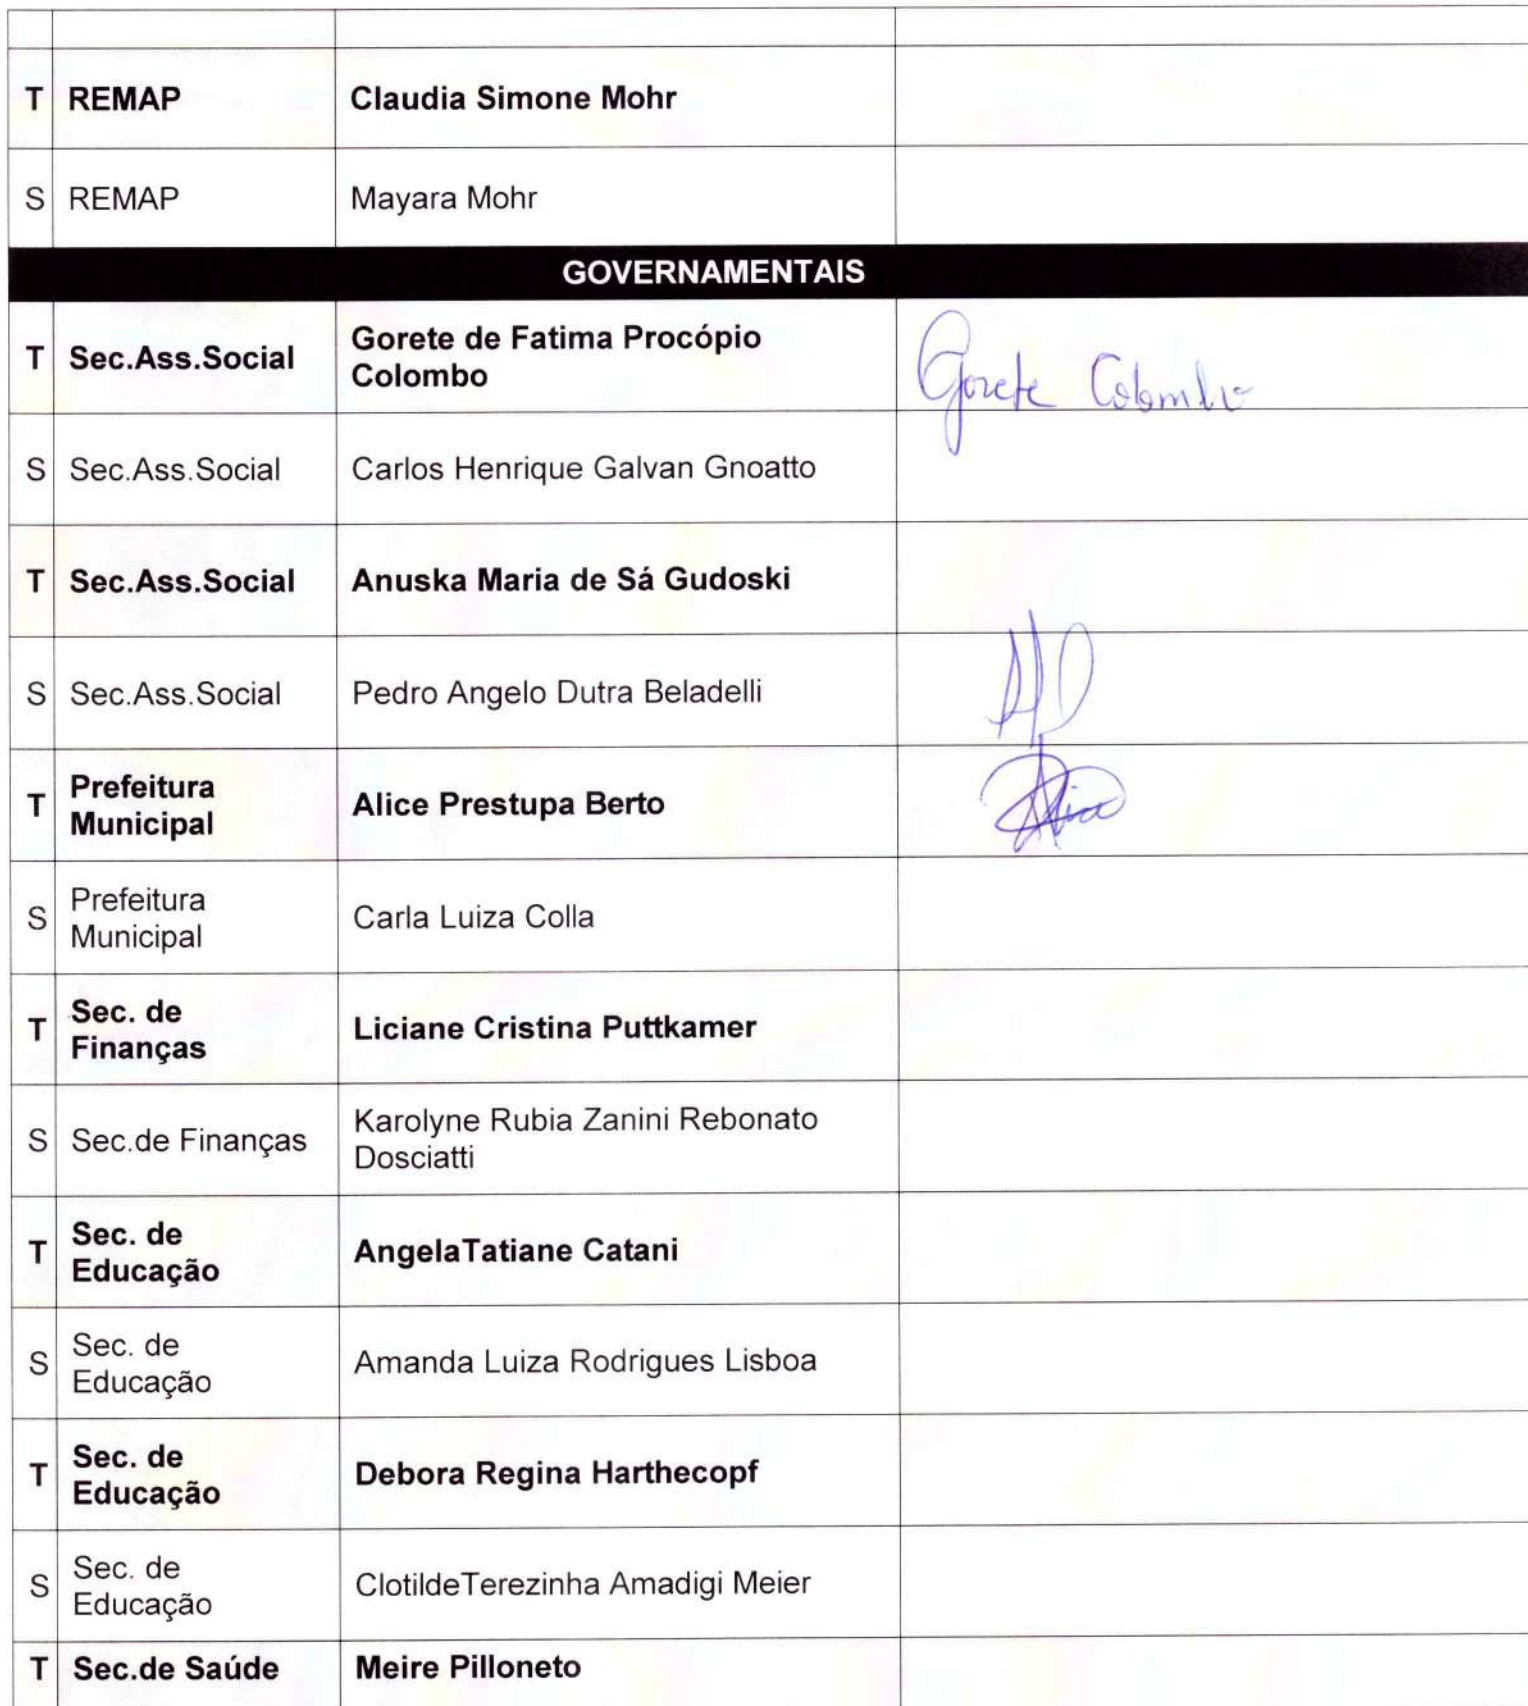 T REMAP Claudia Simone Mohr
S REMAP Mayara Mohr
GOVERNAMENTAIS
T Sec.Ass.Social Gorete de Fatima Procópio
Colombo
Gorete Colombo
S Sec.Ass.Social Carlos Henrique Galvan Gnoatto
T Sec.Ass.Social Anuska Maria de Sá Gudoski
S Sec.Ass.Social Pedro Angelo Dutra Beladelli
T Prefeitura
Municipal
Alice Prestupa Berto
Alice
S Prefeitura
Municipal
Carla Luiza Colla
T Sec. de
Finanças
Liciane Cristina Puttkamer
S Sec.de Finanças Karolyne Rubia Zanini Rebonato
Dosciatti
T Sec. de
Educação
AngelaTatiane Catani
S Sec. de
Educação
Amanda Luiza Rodrigues Lisboa
T Sec. de
Educação
Debora Regina Harthecopf
S Sec. de
Educação
ClotildeTerezinha Amadigi Meier
T Sec.de Saúde Meire Pilloneto